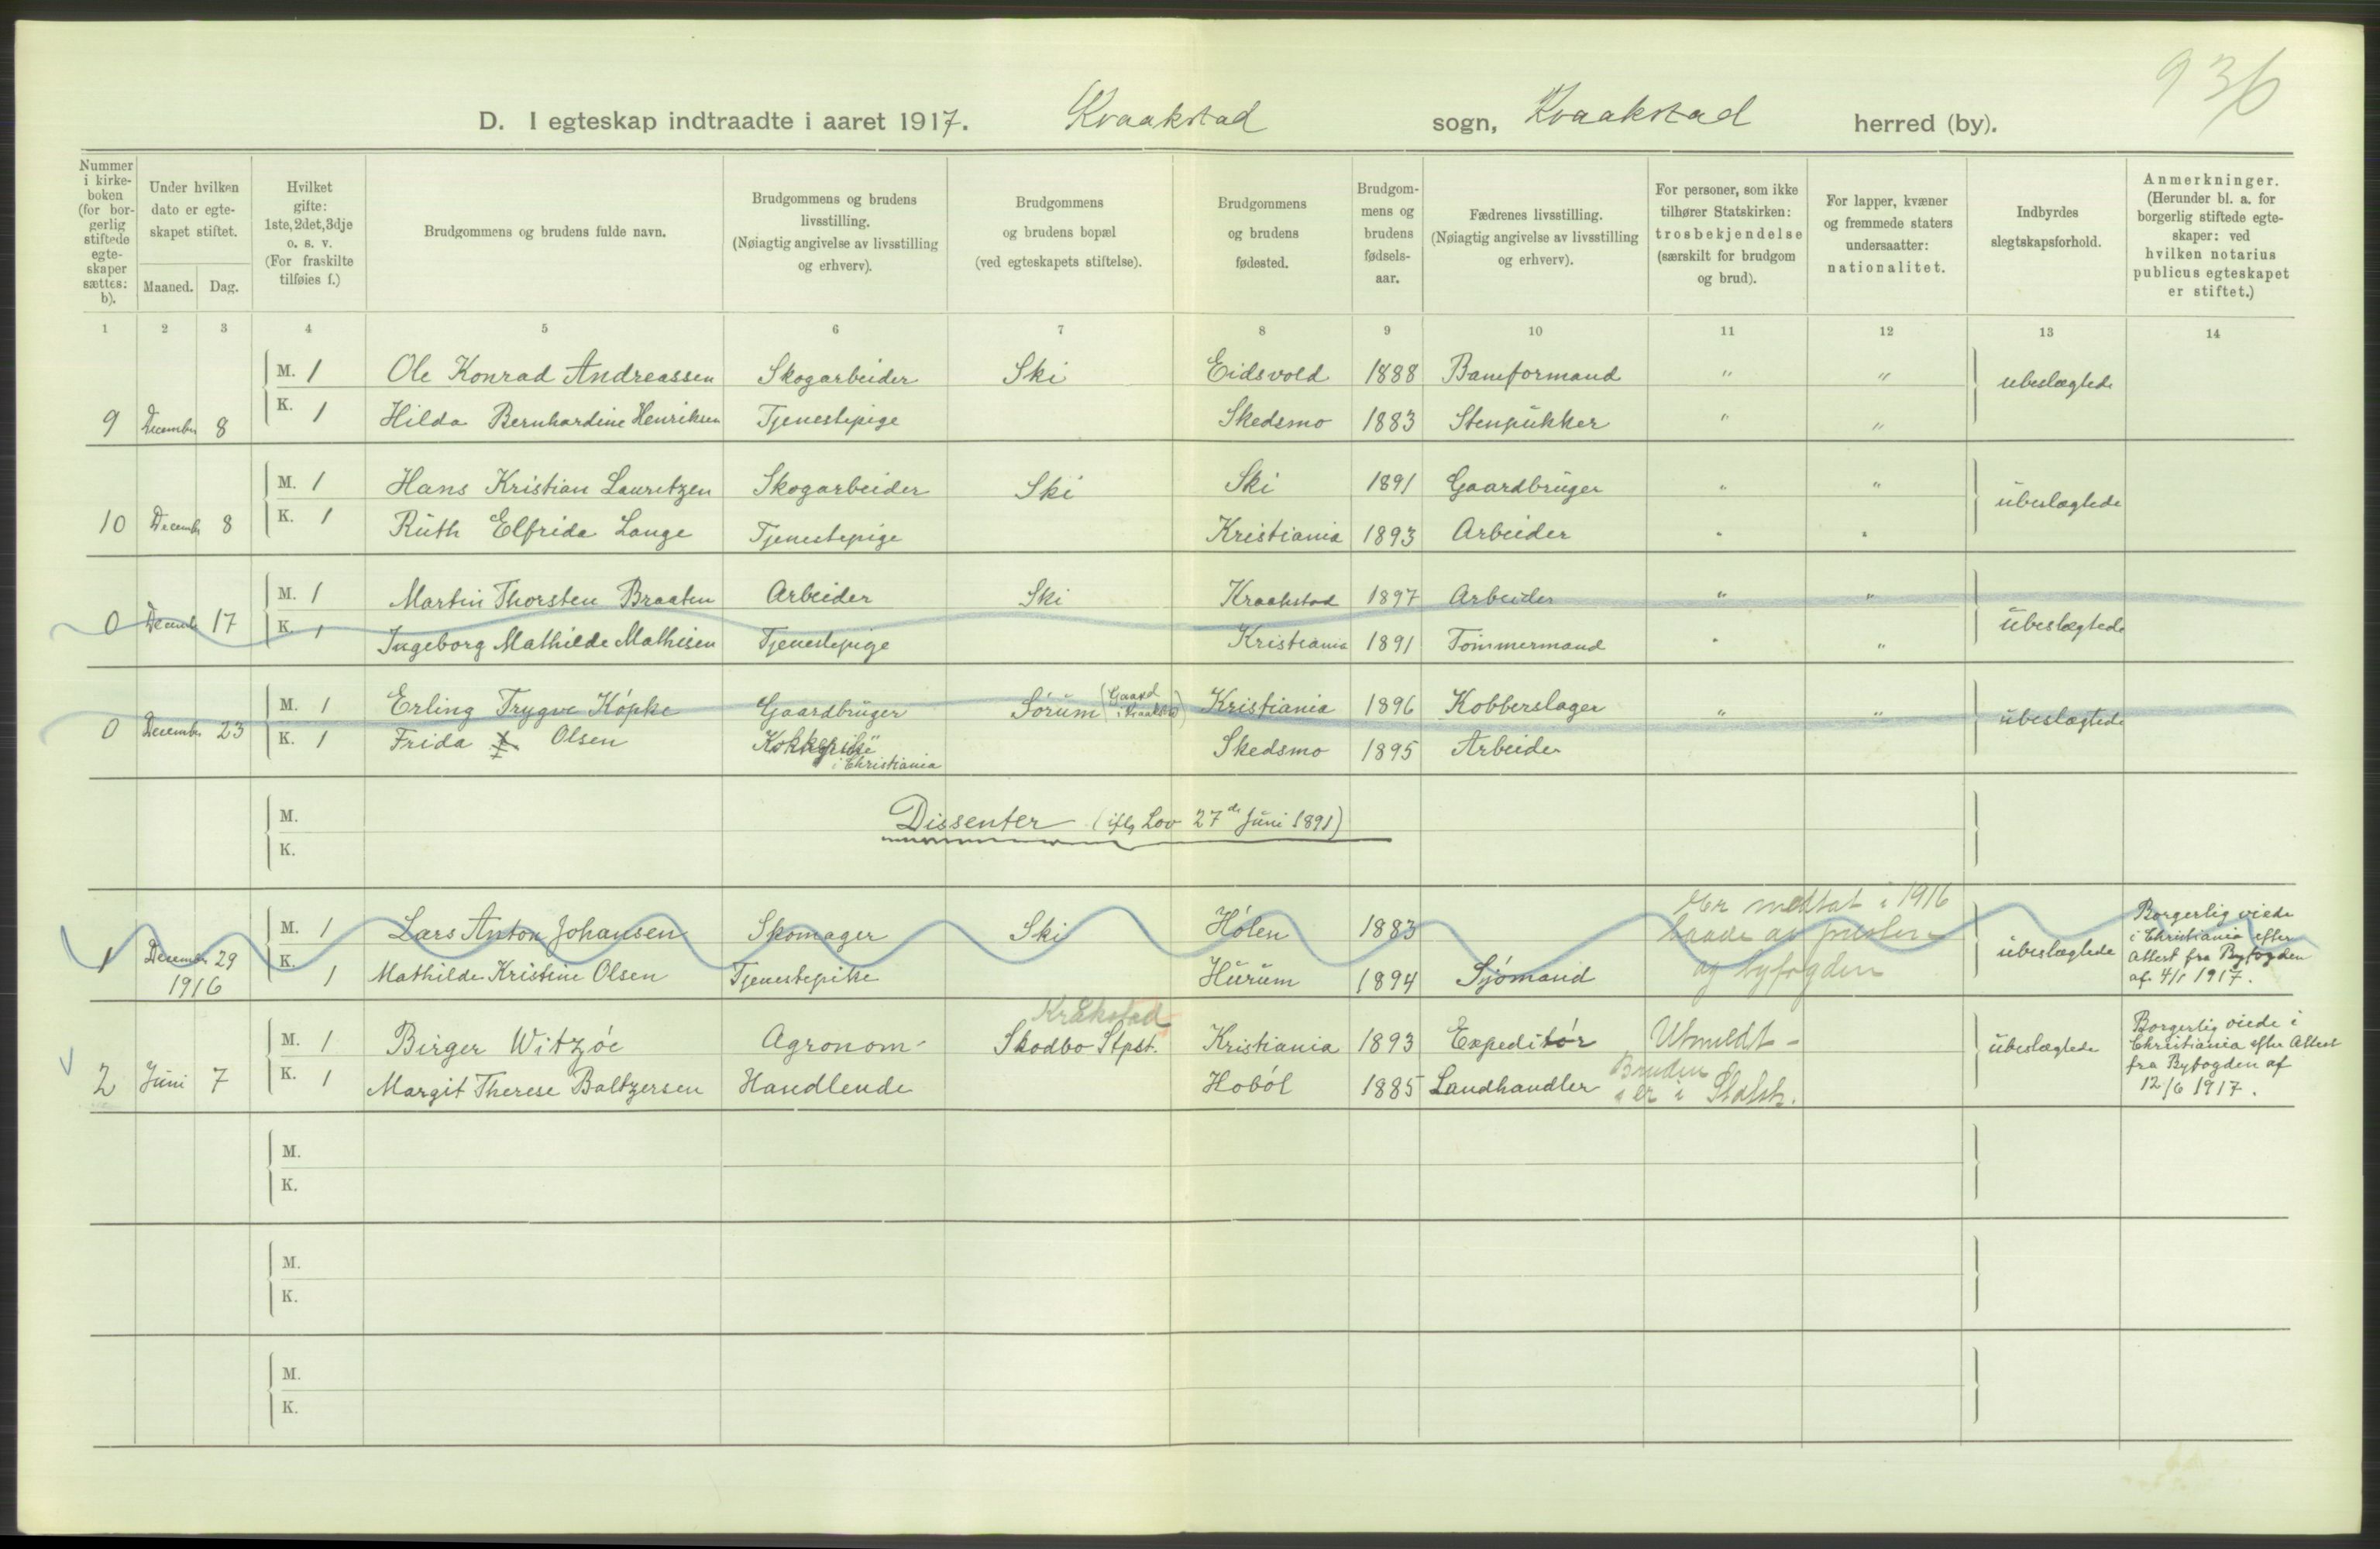 936
D. I egteskap indtraadte i aaret 1917. Kraakstad sogn, Kraakstad herred (by).
Nummer i kirke- boken (for bor- gerlig stiftede egte- skaper sættes: b).
Under hvilken dato er egte- skapet stiftet.
Maaned. Dag.
Hvilket gifte: 1ste, 2det, 3dje o. s. v. (For fraskilte tilføies f.)
Brudgommens og brudens fulde navn.
Brudgommens og brudens livsstilling. (Nøiagtig angivelse av livsstilling og erhverv).
Brudgommens og brudens bopæl (ved egteskapets stiftelse).
Brudgommens og brudens fødested.
Brudgom- mens og brudens fødsels- aar.
Fædrenes livsstilling. (Nøiagtig angivelse av livsstilling og erhverv).
For personer, som ikke tilhører Statskirken: trosbekjendelse (særskilt for brudgom og brud).
For lapper, kvæner og fremmede staters undersaatter: nationalitet.
Indbyrdes slegtskapsforhold.
Anmerkninger. (Herunder bl. a. for borgerlig stiftede egte- skaper: ved hvilken notarius publicus egteskapet er stiftet.)
1 2 3 4 5 6 7 8 9 10 11 12 13 14
M. 1 Ole Konrad Andreassen Skogarbeider Ski Eidsvold 1888 Baneformand " " ubeslægtede
9 December 8 K. 1 Hilda Bernhardine Henriksen Tjenestepige Skedsmo 1883 Stenpukker " "
M. 1 Hans Kristian Lauritzen Skogarbeider Ski Ski 1891 Gaardbruger " " ubeslægtede
10 Decemb 8 K. 1 Ruth Elfrida Lange Tjenestepige Kristiania 1893 Arbeider " "
M. 1 Martin Thorsten Braaten Arbeider Ski Kraakstad 1897 Arbeider " " ubeslægtede
0 Decemb 17 K. 1 Ingeborg Mathilde Mathisen Tjenestepige Kristiania 1891 Tømmermand " "
M. 1 Erling Trygve Köpke Gaardbruger Sörum (Gaard i Kraakstad) Kristiania 1896 Kobberslager " " ubeslægtede
0 December 23 K. 1 Frida Olsen Kokkepike i Christiania Skedsmo 1895 Arbeider
M.
Dissenter (iflg Lov 27de Juni 1891)
K.
Er medtat i 1916
M. 1 Lars Anton Johansen Skomager Ski Hölen 1883 baade av presten ubeslægtede Borgerlig viede i Christiania efter Attest fra Byfogden af 4/1 1917.
1 December 29 1916 K. 1 Mathilde Kristine Olsen Tjenestepike Hurum 1894 Sjömand og byfogden
Kråkstad
M. 1 Birger Witzöe Agronom Skodbo Stpst. Kristiania 1893 Expeditör Utmeldt - ubeslægtede Borgerlig viede i Christiania efter Attest fra Byfogden af 12/6 1917.
2 Juni 7 K. 1 Margit Therese Baltzersen Handlende Haböl 1885 Landhandler Bruden er i Statsk.
M.
K.
M.
K.
M.
K.